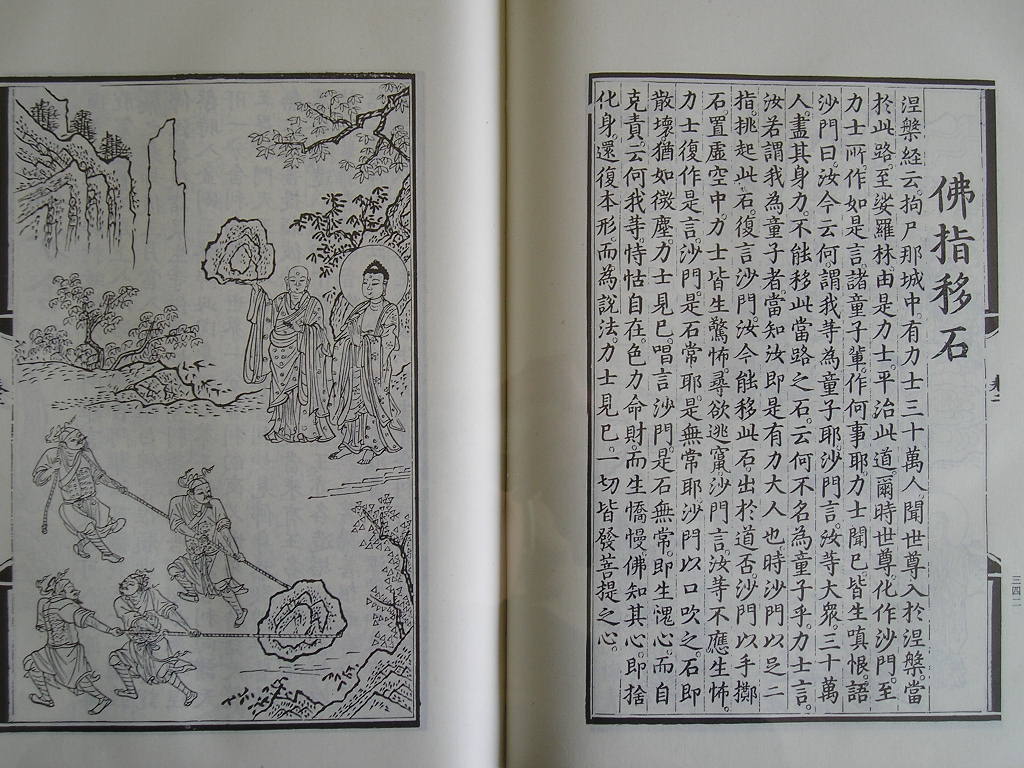 佛指移石
涅槃経云。拘尸那城中。有力士三十萬人。聞世尊入於涅槃。當
於此路。至娑羅林。由是力士。平治此道。爾時世尊。化作沙門。至
力士所。作如是言。諸童子軰。作何事耶。力士聞已。皆生嗔恨。語
沙門曰。汝今云何謂我等為童子耶。沙門言。汝等大衆。三十萬
人。盡其身力。不能移此當路之石。云何不名為童子乎。力士言。
汝若謂我為童子者。當知汝即是有力大人也。時沙門以足二
指。挑起此石。復言沙門。汝今能移此石。出於道否。沙門以手擲
石置虛空中。力士皆生驚怖。尋欲逃竄。沙門言。汝等不應生怖。
力士復作是言。沙門。是石常耶。是無常耶。沙門以口吹之。石即
散壞。猶如微塵。力士見已。唱言沙門。是石無常。即生愧心。而自
克責。云何我等。恃怙自在。色力命財。而生憍慢。佛知其心。即捨
化身。還復本形。而為說法。力士見已。一切皆發菩提之心。
三四二